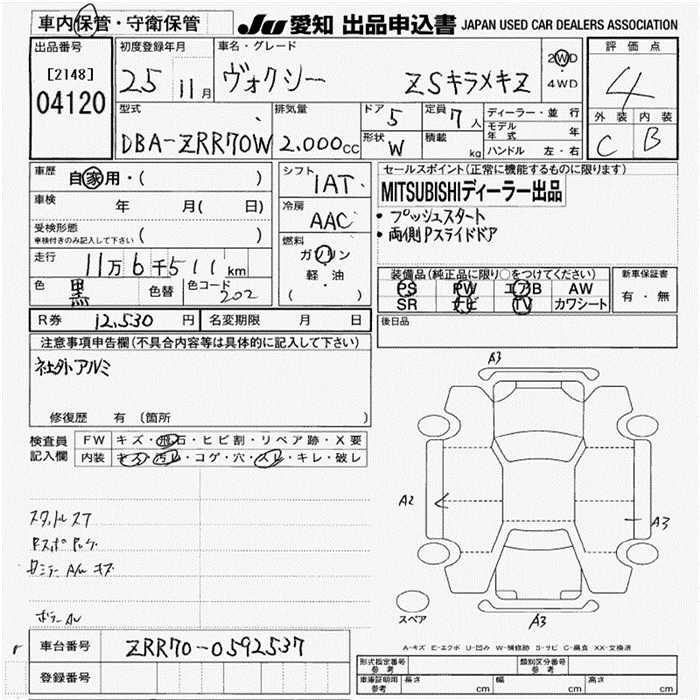 車内保管・守衛保管
JU 愛知 出品申込書 JAPAN USED CAR DEALERS ASSOCIATION
出品番号
[2148]
04120
初度登録年月
25 11月
車名・グレード
ヴォクシー ZSキラメキZ
2WD
・
4WD
評価点
4
外装 内装
C B
型式
DBA-ZRR70W
排気量
2.000cc
ドア 5
形状 W
定員 7人
積載 kg
ディーラー・並行
モデル年式 年
ハンドル 左・右
車歴
自家用・( )
車検
年 月( 日)
受検形態
車検付きのみ記入して下さい ( )
走行
11万6千511km
色 黒 色替 色コード 202
シフト
IAT
冷房
AAC
燃料
ガソリン
軽・油
( )
セールスポイント(正常に機能するものに限ります)
MITSUBISHIディーラー出品
・プッシュスタート
・両側Pスライドドア
装備品(純正品に限り○をつけてください)
PS PW エアB AW
SR ナビ TV カワシート
新車保証書
有・無
R券 12,530円 名変期限 月 日
後日品
注意事項申告欄(不具合内容等は具体的に記入して下さい)
社外アルミ
修復歴 有 (箇所 )
検査員記入欄
FW キズ・飛石・ヒビ割・リペア跡・X要
内装 キズ・汚レ・コゲ・穴・スレ・キレ・破レ
A3
A2
A3
A3
スペア
車台番号 ZRR70-0592537
登録番号
A-キズ E-エクボ U-凹み W-補修跡 S-サビ C-腐食 XX-交換済
形式指定番号 参考
類別区分番号 参考
車庫証明用 参考 長さ cm 幅 cm 高さ cm